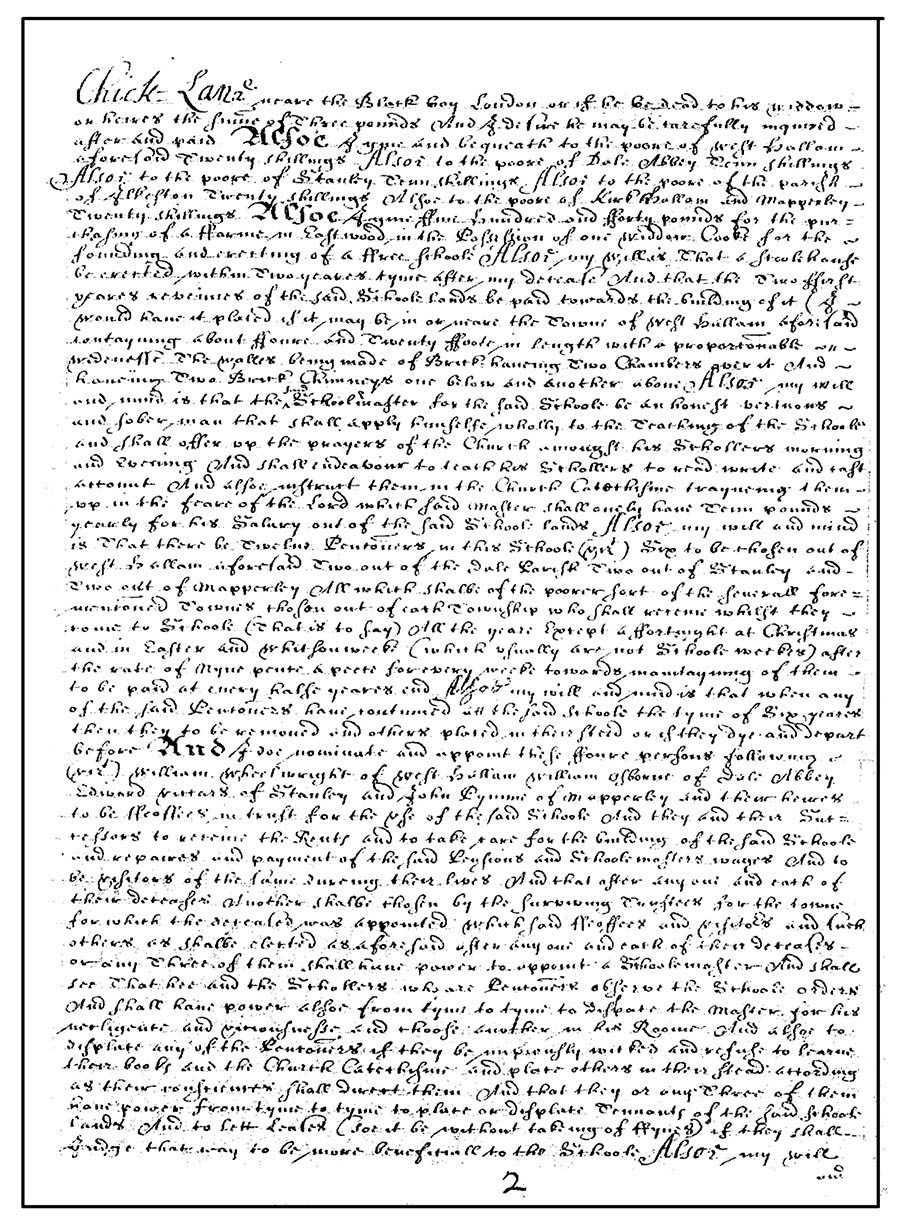 Chick-Lane neare the Black boy London or if he be dead to his widdow
or heires the sume of Three pounds And I desire he may be carefully inquired
after and paid Alsoe I give and bequeath to the poore of West Hallam
aforesaid Twenty shillings Alsoe to the poore of Dale Abbey Tenn shillings
Alsoe to the poore of Stanley Tenn shillings Alsoe to the poore of the parish
of Ilkeston Twenty shillings Alsoe to the poore of Kirk Hallam and Mapperley
Twenty shillings Alsoe I give ffive Hundred and fforty pounds for the pur=
chasing of a ffarme in Eastwood in the Possession of one Widdow Cooke for the
founding and erecting of a ffree Schoole Alsoe my will is That a scoolehouse
be erected within Two yeares tyme after my decease And that the Two ffirst
yeares revenues of the said Schoole lands be paid towards the building of it (I
would have it placed if it may be in or neare the Towne of West Hallam aforesaid
contayning about ffoure and Twenty ffoote in length with a proportionable
widenesse The walles being made of Brick haveing Two Chambers over it And
haveing Two Brick Chimneys one below and another above Alsoe my will
and mind is that the said Schoolmaster for the said Schoole be an honest vertuous
and sober man that shall apply himselfe wholly to the Teaching of the Schoole
and shall offer up the prayers of the Church amongst his Schollers morning
and Evening And shall endeavour to teach his Schollers to read write and cast
account And alsoe instruct them in the Church Catechisme trayneing them
up in the feare of the Lord which said Master shall onely have Tenn pounds
yearly for his Salary out of the said Schoole lands Alsoe my will and mind
is That there be Twelve Pentoners in this Schoole (vizt) Six to be chosen out of
West Hallam aforesaid Two out of the Dale Parish Two out of Stanley and
Two out of Mapperley All which shalbe of the poorer sort of the severall fore=
mentoned Townes chosen out of each Township who shall receive whilst they
come to Schoole (That is to say) All the yeare Except a ffortnight at Christmas
and in Easter and Whitsonweeke (which usually are not Schoole weekes) after
the rate of Nyne pence a peece for every weeke towards mantayning of them
to be paid at every halfe yeares end Alsoe my will and mind is that when any
of the said Pentoners have continued att the said Schoole the tyme of Six yeares
then they to be removed and others placed in their steed or if they dye and depart
before And I doe nominate and appoint these ffoure persons following
(vizt) William Wheelwright of West Hallam William Osborne of Dale Abbey
Edward of Stanley and John of Mapperley and their heires
to be ffeoffees in trust for the Use of the said Schoole And they and their Suc=
cessors to receive the Rents and to take care for the building of the said Schoole
and repaires and payment of the said Pensions and Schoolemasters wages And to
be visitors of the same dureing their lives And that after any one and each of
their deceases Another shalbe chosen by the surviving Trustees for the towne
for which the deceased was appointed which said ffeoffees and visitors and such
others as shalbe elected as aforesaid after any one and each of their deceases
or any Three of them shall have power to appoint a Schoolemaster And shall
see That hee and the Schollers who are Pentoners observe the Schoole orders
And shall have power alsoe from tyme to tyme to displace the Master for his
negligence and viciousnesse and choose another in his Roome And alsoe to
displace any of the Pentoners if they be impiously wicked and refuse to learne
their books and the Church Catechisme and place others in their stead according
as their consciences shall direct them And that they or any Three of them
have power from tyme to tyme to place or displace Tennants of the said Schoole
lands And to lett leases (soe it be without taking of ffynes) if they shall
Judge that way to be more beneficiall to the Schoole Alsoe my will
and
2